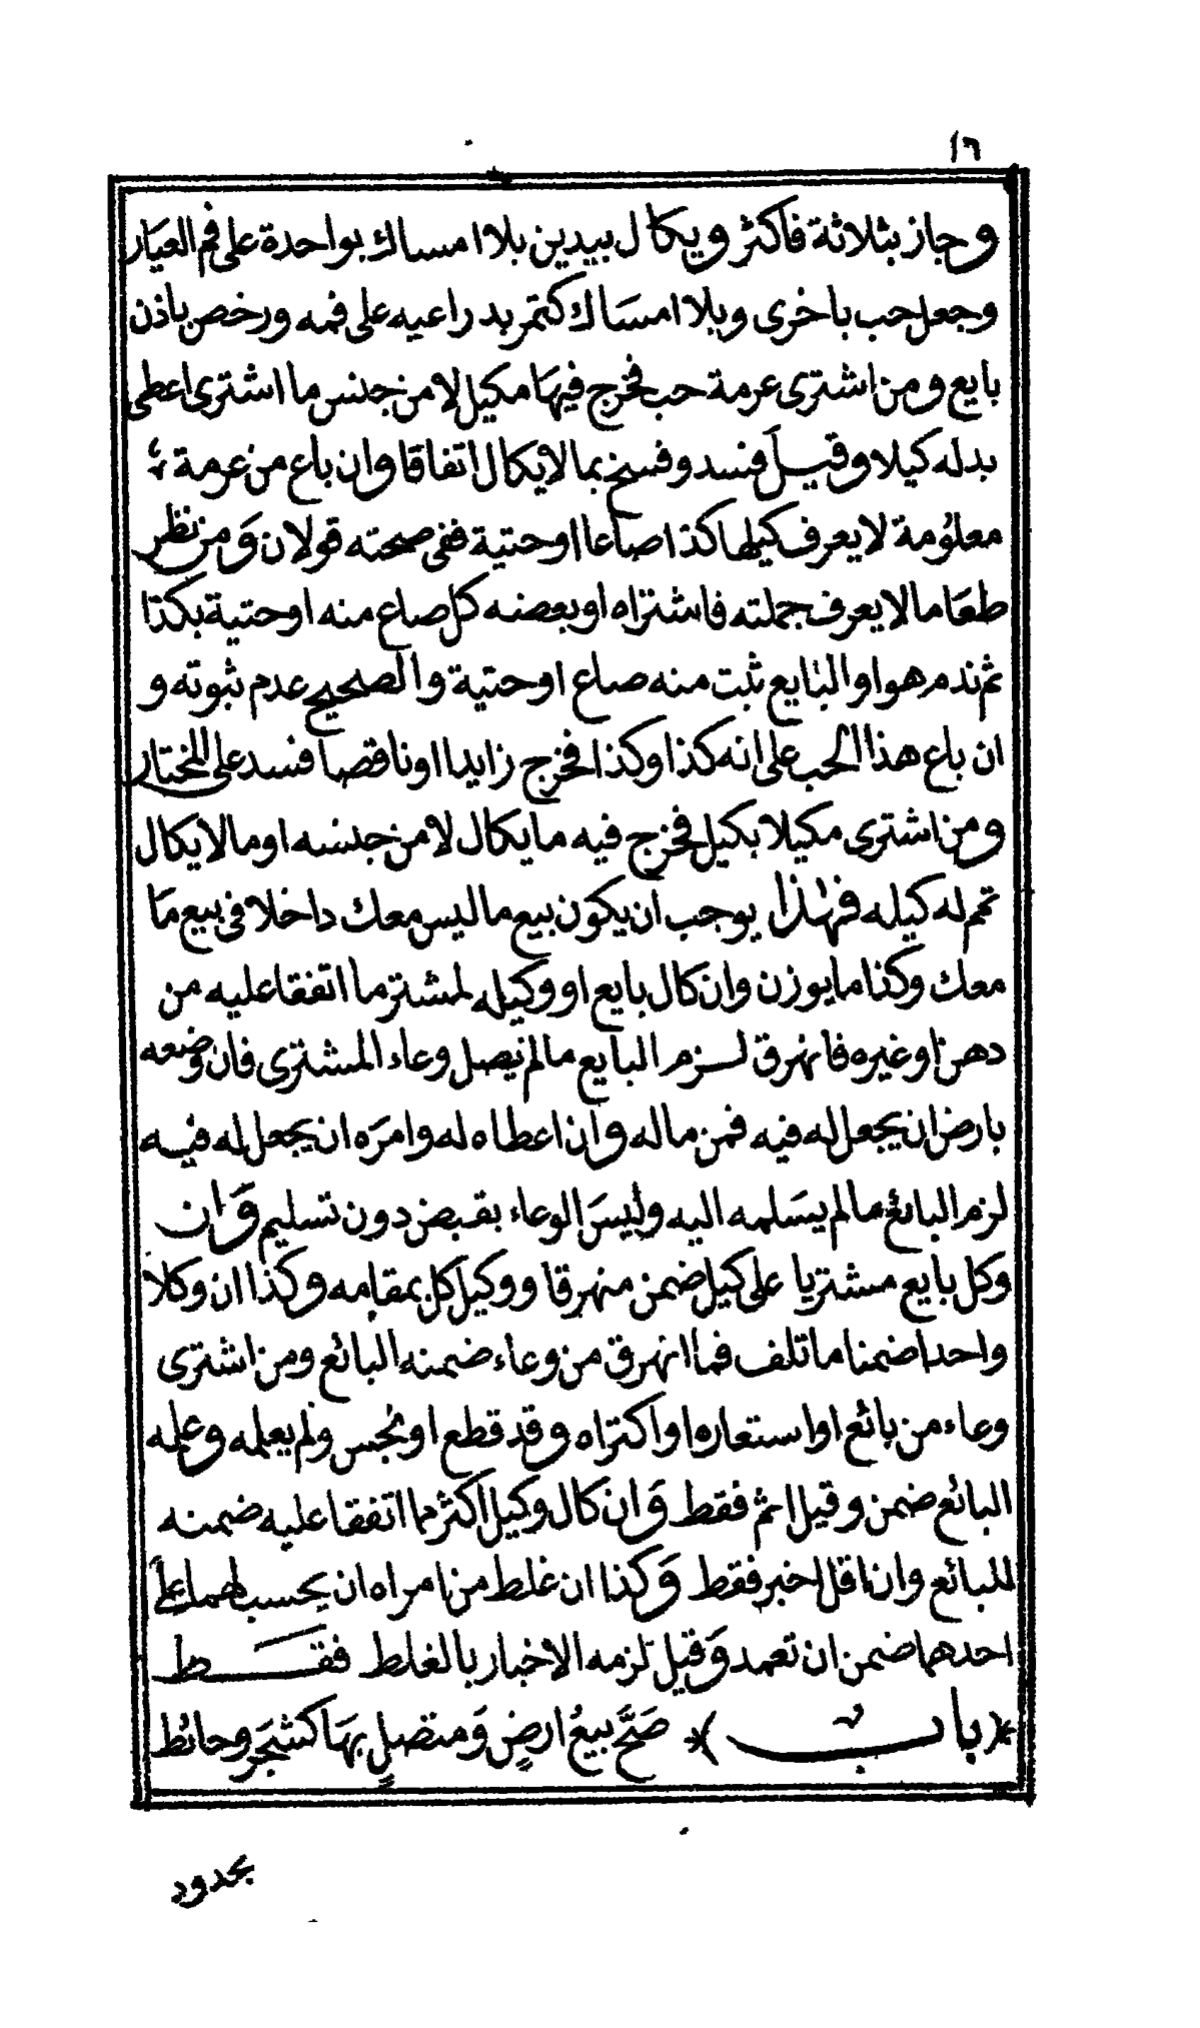 ١٦
وجاز بثلاثة فاكثر ويكال بيدين بلا امساك بواحدة على فم العيار
وجعل حب باخرى وبلا امساك كتمر بدراعيه على فمه ورخص باذن
بايع ومن اشترى عرمة حب فخرج فيها مكيل لا من جنس ما اشترى اعطى
بدله كيلا وقيل فسد وفسخ بما لا يكال اتفاقا وان باع من عرمة
معلومة لا يعرف كيلها كذا صاعا او حتية ففي صحته قولان ومن نظر
طعاما لا يعرف جملته فاشتراه او بعضه كل صاع منه او حتية بكذا
ثم ندم هو او البايع ثبت منه صاع او حتية والصحيح عدم ثبوته و
ان باع هذا الحب على انه كذا وكذا فخرج زايدا او ناقصا فسد على المختار
ومن اشترى مكيلا بكيل فخرج فيه ما يكال لا من جنسه او ما لا يكال
تمم له كيله فهذا يوجب ان يكون بيع ما ليس معك داخلا في بيع ما
معك وكذا ما يوزن وان كال بايع او وكيله لمشتر ما اتفقا عليه من
دهن او غيره فانهرق لزم البايع ما لم يصل وعاء المشترى فان وضعه
بارض ان يجعل له فيه فمن ماله وان اعطاه له وامره ان يجعل له فيه
لزم البائع ما لم يسلمه اليه وليس الوعاء بقبض دون تسليم وان
وكل بايع مشتريا على كيل ضمن منهرقا ووكيل كل بمقامه وكذا ان وكلا
واحدا ضمنا ما تلف فما انهرق من وعاء ضمنه البائع ومن اشترى
وعاء من بائع او استعاره او اكتراه وقد قطع او نجس ولم يعلمه وعلمه
البائع ضمن وقيل اثم فقط وان كال وكيل اكثر مما اتفقا عليه ضمنه
للبائع وان اقل اخبر فقط وكذا ان غلط من امراه ان يحسب لهما على
احدهما ضمن ان تعمد وقيل لزمه الاخبار بالغلط فقط
باب صَحَّ بيعُ ارضٍ وَمتصلٍ بهَا كشجَر وحائط
بحدود